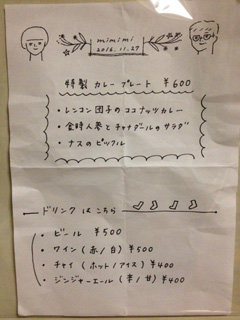 mimimi
2016.11.27
特製 カレープレート ¥600
・レンコン団子のココナッツカレー
・金時人参とチャナダールのサラダ
・ナスのピックル
ドリンクはこちら
・ビール ¥500
・ワイン(赤/白) ¥500
・チャイ(ホット/アイス) ¥400
・ジンジャーエール(辛/甘) ¥400